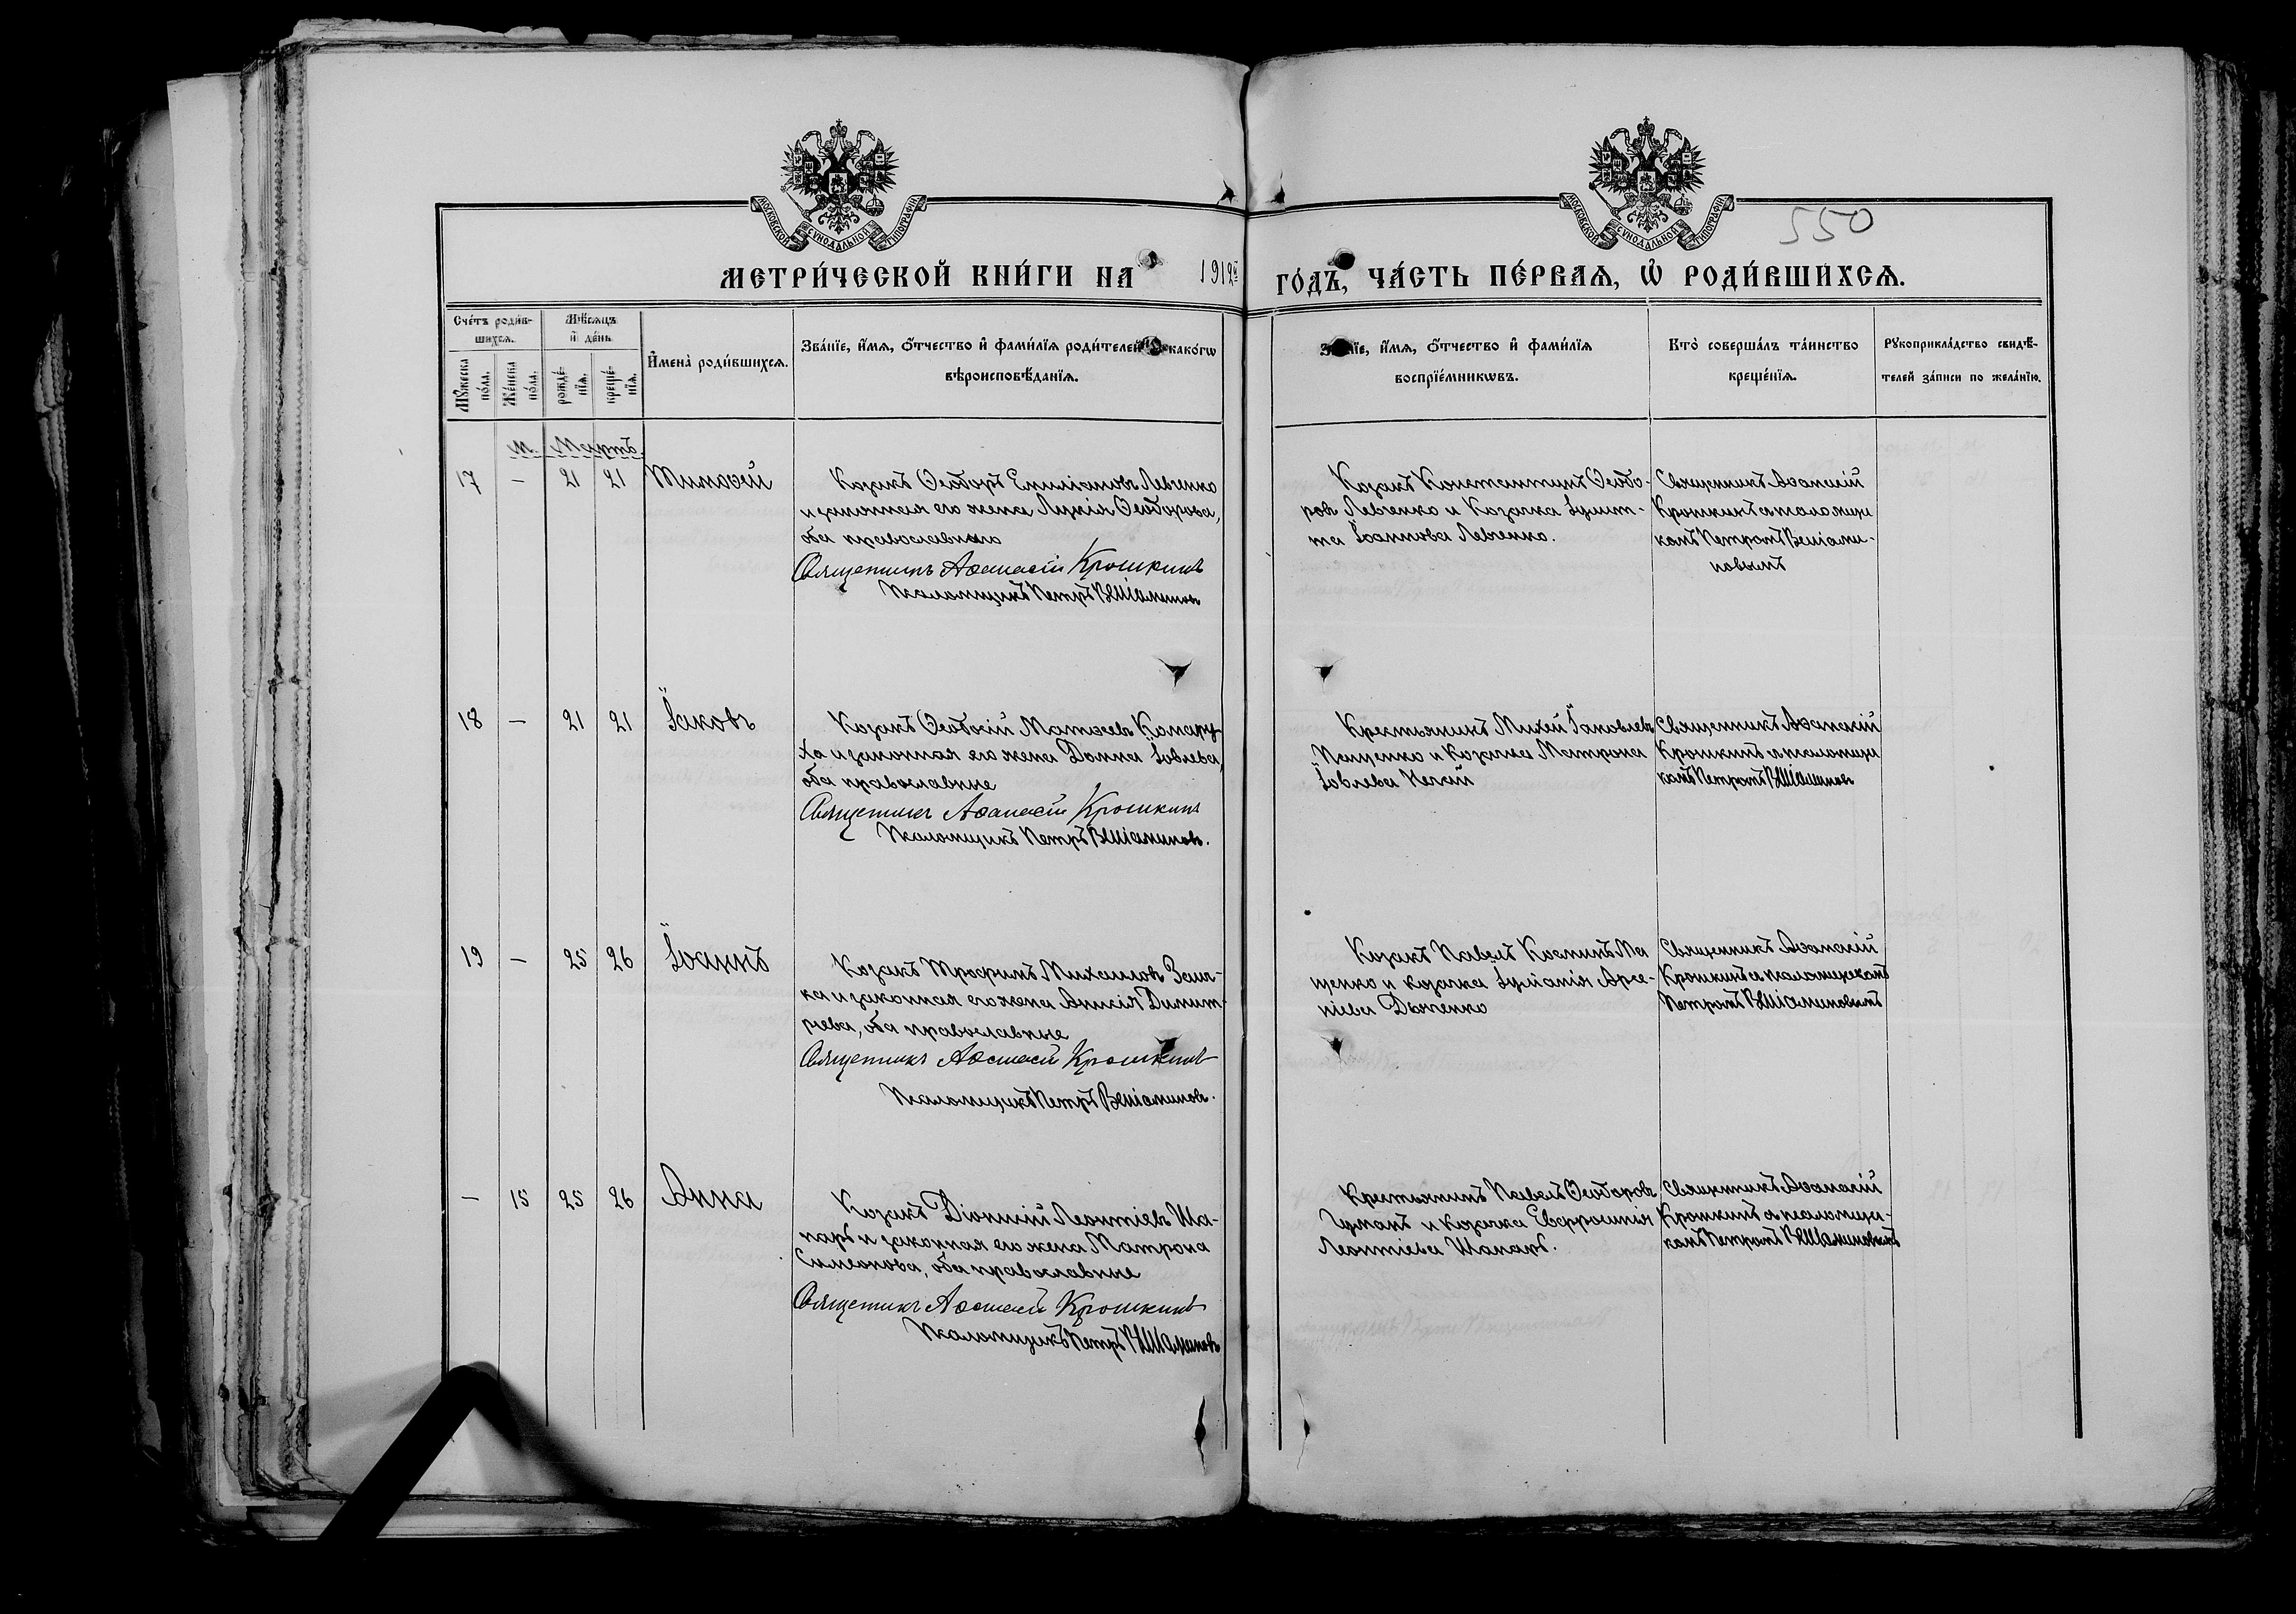 МОСКОВСКОЙ СѴНОДАЛЬНОЙ ТИПОГРАФІИ
МОСКОВСКОЙ СѴНОДАЛЬНОЙ ТИПОГРАФІИ
550
МЕТРИ́ЧЕСКОЙ КНИ́ГИ НА 1912й ГО́ДЪ, ЧА́СТЬ ПЕ́РВАЯ, Ѡ҆ РОДИ́ВШИХСЯ.
Сче́тъ роди́в-
шихся.
Мꙋ́жеска по́ла.
Же́нска по́ла.
Мѣ́сяцъ
и҆ де́нь.
рожде́-нїя.
креще́-нїя.
И҆мена̀ роди́вшихся.
Зва́нїе, и҆́мя, ѻ҆́тчество и҆ фами́лїя роди́телей како́гѡ
вѣроисповѣ́данїя.
и҆́мя, ѻ҆́тчество и҆ фами́лїя
воспрїе́мникѡвъ.
Кто̀ соверша́лъ та́инство
креще́нїя.
Рꙋкоприкла́дство свидѣ́-
телей за́писи по жела́нїю.
м. Мартъ.
17 – 21 21 Тимоѳей
Козакъ Ѳеодоръ Емиліановъ Левченко
и законная его жена Лукія Ѳеодорова,
оба православнаго
Священникъ Аѳанасій Крошкинъ
Псаломщикъ Петръ Веніаминовъ
Козакъ Константинъ Ѳеодо-
ровъ Левченко и Козачка
Іоаннова Левченко.
Священникъ Аѳанасій
Крошкинъ с псаломщи
комъ Петромъ Веніами-
новымъ
18 – 21 21 Іаковъ
Козакъ Ѳеодосій Матѳеевъ Комару-
ха и законная его жена Домна Іовлева,
оба православные
Священникъ Аѳанасій Крошкинъ
Псаломщикъ Петръ Веніаминовъ.
Крестьянинъ Михей Іаковлевъ
Пащенко и Козачка Матрона
Іовлева
Священникъ Аѳанасій
Крошкинъ с псаломщи
комъ Петромъ Веніаминов
19 – 25 26 Іоаннъ
Козакъ Трофимъ Михаиловъ Заи-
ка и законная его жена Анисія Димит-
ріева, оба православные
Священникъ Аѳанасій Крошкинъ
Псаломщикъ Петръ Веніаминовъ.
Козакъ Павелъ Космин
щенко и козачка Іуліанія Арсе-
ніева
Священникъ Аѳанасій
Крошкинъ с псаломщикомъ
Петромъ Веніаминовымъ
– 15 25 26 Анна
Козакъ Діонисій Леонтіевъ Ша-
паръ и законная его жена Матрона
Симеонова, оба православные
Священникъ Аѳанасій Крошкинъ
Псаломщикъ Петръ Веніаминовъ
Крестьянинъ Павелъ Ѳеодоровъ
и козачка Евфросинія
Леонтіева
Священникъ Аѳанасій
Крошкинъ с псаломщи-
комъ Петромъ Веніаминовымъ